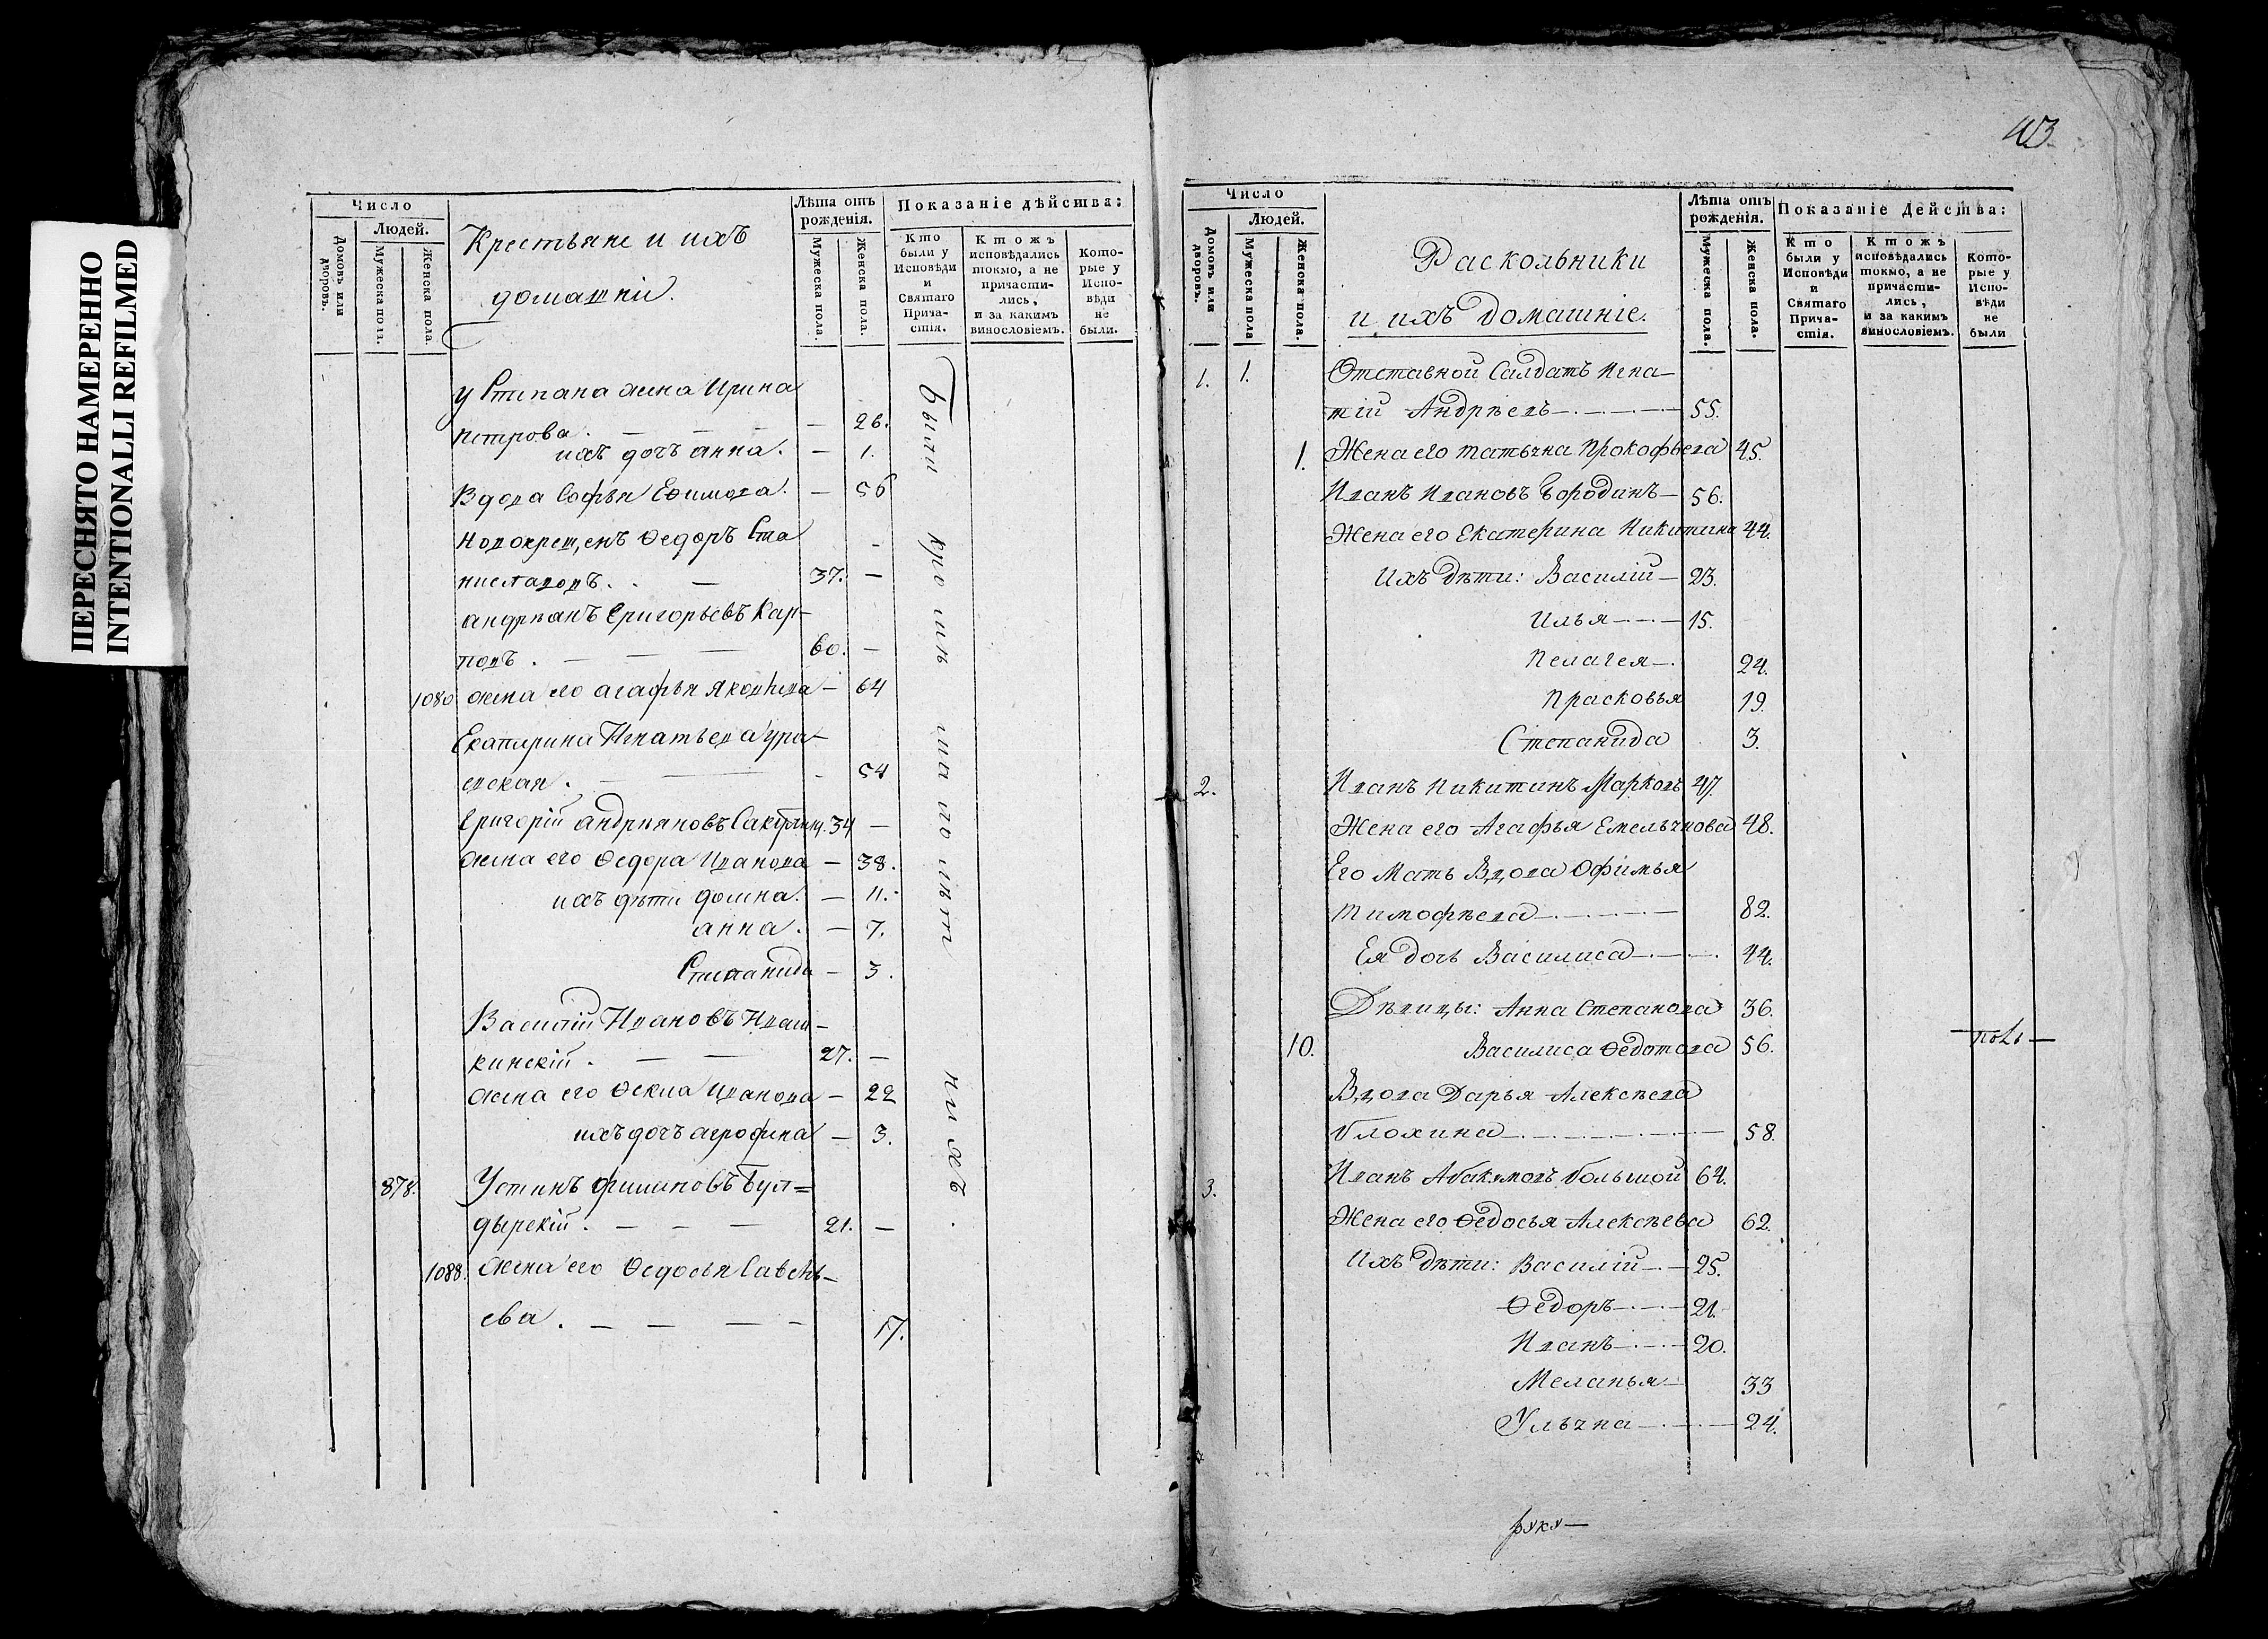 ПЕРЕСНЯТО НАМЕРЕННО
INTENTIONALLI REFILMED
Число
Людей.
Домовъ или дворовъ.
Мужеска пола.
Женска пола.
Крестьяне и ихъ
домашніи.
Лѣта отъ рожденія.
Мужеска пола
Женска пола.
Показаніе дѣйства:
Кто были у Исповѣди и Святаго Причастія.
Ктожъ исповѣдались токмо, а не причастились, и за какимъ винословіемъ.
Которые у Исповѣди не были.
у Степана жена Ирина
петрова. — — — 26.
ихъ дочь анна. — 1.
Вдова Софья Ефимова. — 56
Новокрещенъ Ѳедоръ Ста
ниславовъ. . — 37. —
андреянъ Григорьевъ Кар-
повъ. — — — 60. —
1080 жена его агафья Яковлева — 64
Екатерина Игнатьева
— 54
Григорій андреяновъ 34 —
жена его Ѳедора Иванова — 38.
ихъ дѣти домна. — 11.
анна. — 7.
Степанида — 3.
Василій Ивановъ Иваш-
кинскій. — — 27. —
жена его Ѳекла Иванова — 22
ихъ дочь агрофина — 3.
878. Устинъ филиповъ Бул=
дырскій. — — — 21. —
1088. жена его Ѳедосья Савель-
ева. — — — — 17.
Были
нихъ.
413
Число
Людей.
Домовъ или дворовъ.
Мужеска пола
Женска пола.
Раскольники
и ихъ домашніе.
Лѣта отъ рожденія.
Мужеска пола.
Женска пола.
Показаніе Дейсшва:
Кто были у Исповѣди и Святаго Причастія.
Ктожъ исповѣдались токмо, а не причастились, и за какимъ винословіемъ.
Которые у Исповѣди не были
1. 1. Отставной Салдатъ Игна-
тій Андрѣевъ — 55.
1. Жена его татьяна Прокофьева 45.
Иванъ Ивановъ Бородинъ — 56.
Жена его Екатерина Никитина 44.
Ихъ дѣти: Василій — 23.
Илья — 15.
Пелагея —. 24.
Прасковья 19.
Степанида 3.
2. Иванъ Никитинъ Марковъ 47.
Жена его Агафья Емельянова 48.
Его Мать Вдова Офимья
Тимофѣева — 82.
Ея дочь Василиса — 44.
Дѣвицы: Анна Степанова 36.
10. Василиса Ѳедотова 56.
Вдова Дарья Алексѣева
Блохина — 58.
3. Иванъ Абакумовъ большой 64.
Жена его Ѳедосья Алексѣева 62.
Ихъ дѣти: Василій — 25.
Ѳедоръ — 21.
Иванъ — 20.
Меланья — 33
Ульяна — 24.
руку —